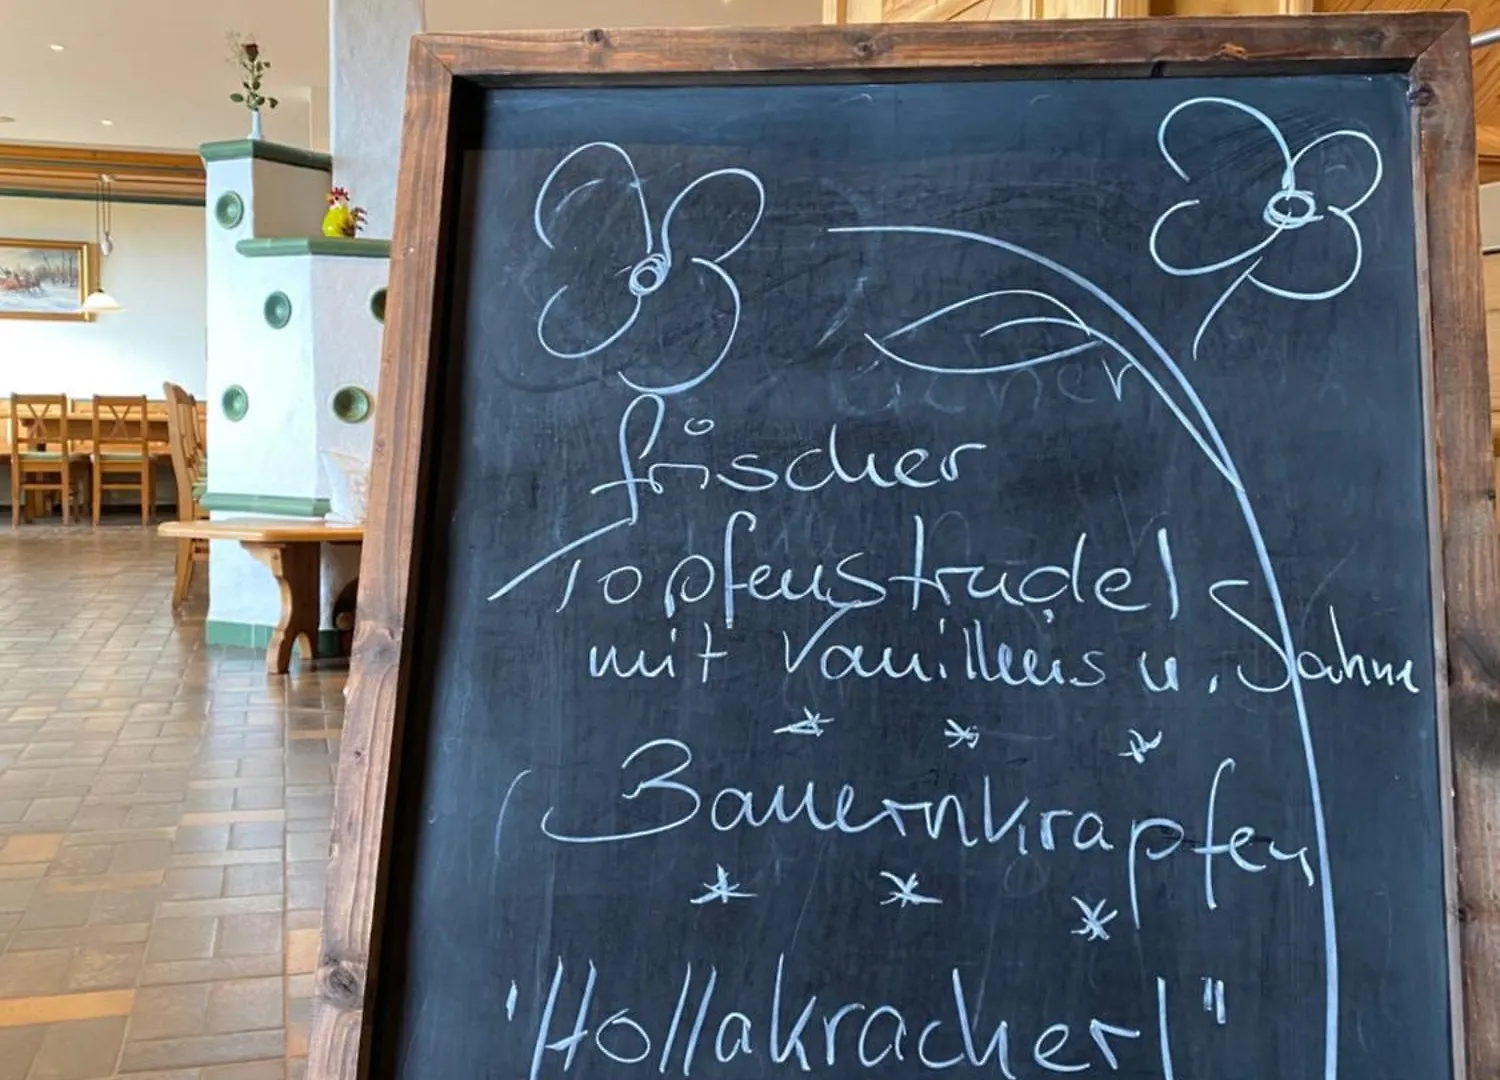 frischer
Topfenstrudel
mit Vanilleeis u. Sahne
* * *
Bauernkrapfen
* * *
"Hollakracherl"